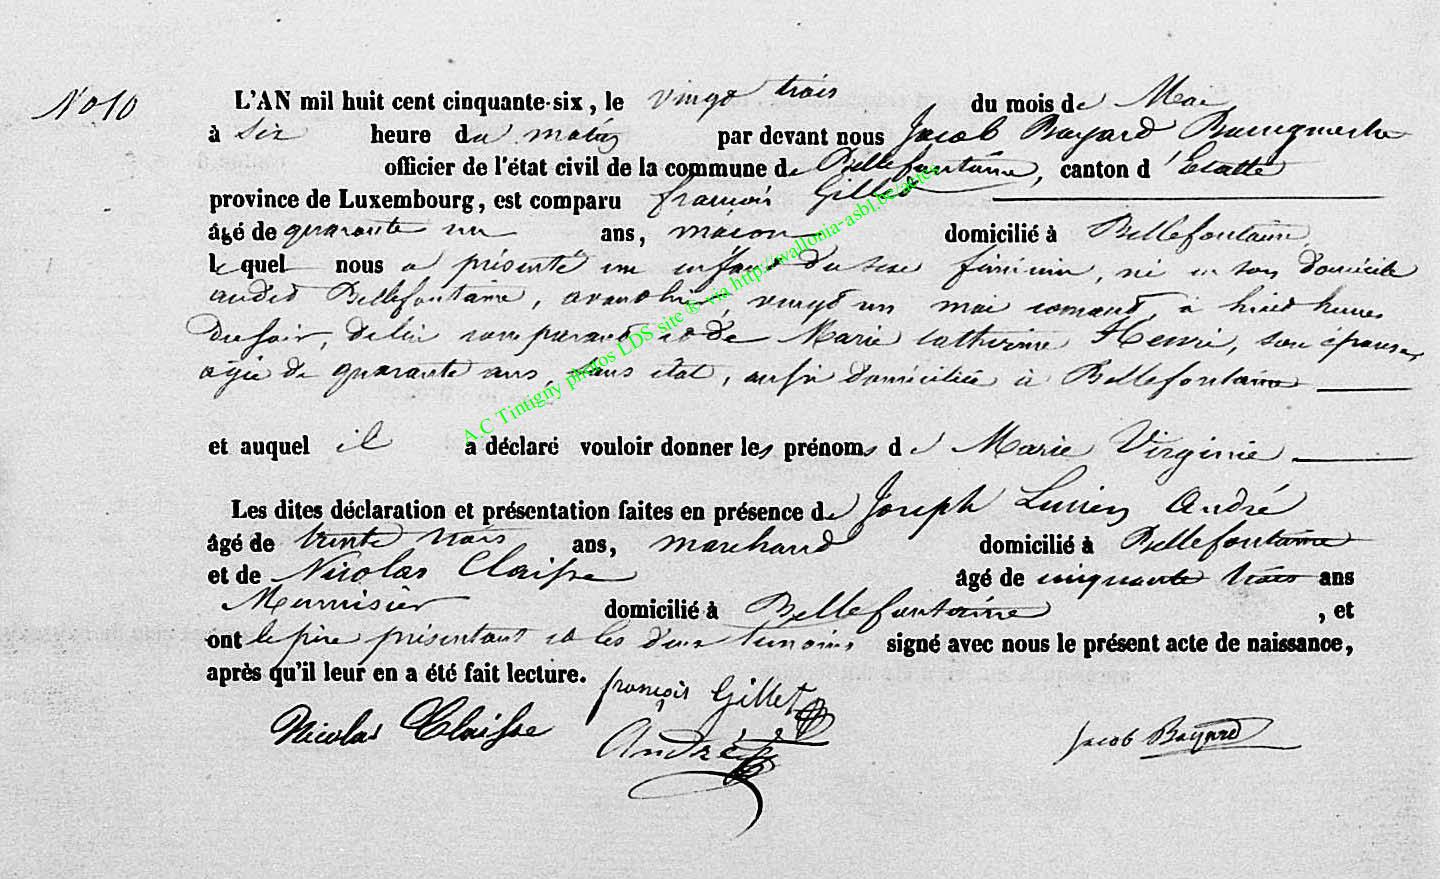 N° 10
L'AN mil huit cent cinquante-six, le vingt trois du mois de Mai
à six heure du matin par devant nous Jacob Bayard Bourgmestre
officier de l'état civil de la commune de Bellefontaine, canton d'Etalle
province de Luxembourg, est comparu françois Gillet
âgé de quarante un ans, maçon domicilié à Bellefontaine
lequel nous a présenté un enfant du sexe féminin, né en son domicile
audit Bellefontaine, avant hier, vingt un mai courant, à huit heures
du soir, de lui comparant et de Marie Catherine Henri, son épouse,
agée de quarante ans, sans état, aussi domiciliée à Bellefontaine
et auquel il a déclaré vouloir donner les prénoms de Marie Virginie
Les dites déclaration et présentation faites en présence de Joseph Lucien André
âgé de trente trois ans, marchand domicilié à Bellefontaine
et de Nicolas Claisse âgé de cinquante trois ans
Menuisier domicilié à Bellefontaine, et
ont le père présentant et les deux témoins signé avec nous le présent acte de naissance,
après qu'il leur en a été fait lecture.
françois Gillet
Nicolas Claisse
André
Jacob Bayard
A.C Tintigny photos LDS site ® via http://wallonia-asbl.be/actes